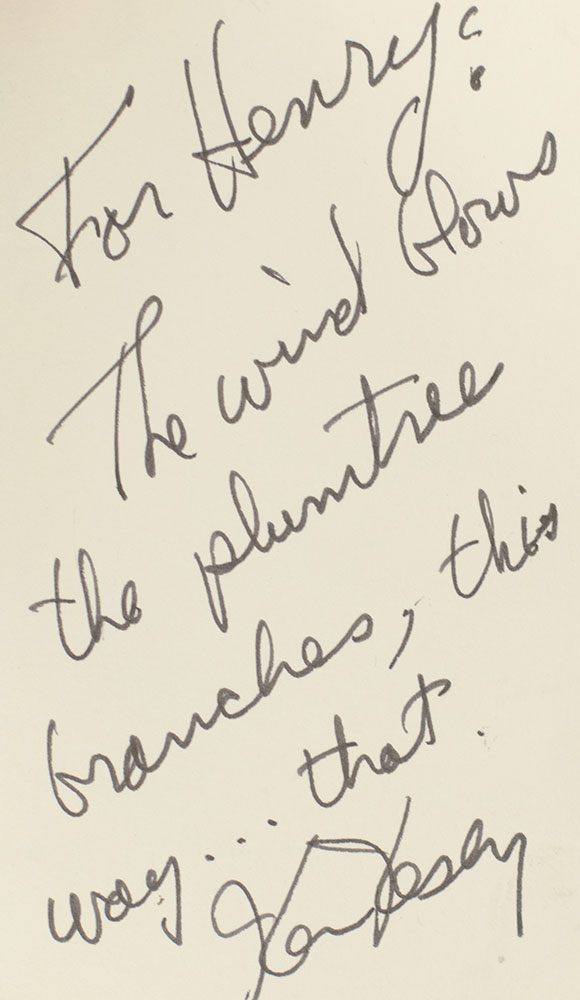 For Henry:
The wind blows
the plumtree
branches, this
way... that.
Ken Kesey